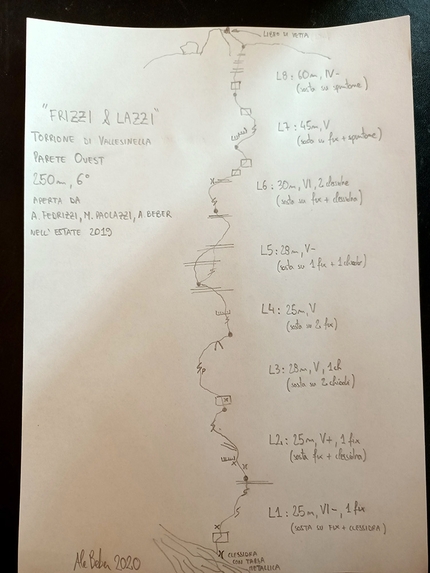 LIBRO DI VETTA
L8: 60m, IV-
(sosta su spuntone)
"FRIZZI & LAZZI"
TORRIONE DI VALLESINELLA
PARETE OVEST
250m, 6°
APERTA DA
A. FEDRIZZI, M. PAOLAZZI, A. BEBER
NELL'ESTATE 2019
L7: 45m, V
(sosta su fix + spuntone)
L6: 30m, VI, 2 clessidre
(sosta su fix + clessidra)
L5: 28m, V-
(sosta su 1 fix + 1 chiodo)
L4: 25m, V
(sosta su 2 fix)
L3: 28m, V, 1ch
(sosta su 2 chiodi)
L2: 25m, V+, 1 fix
(sosta fix + clessidra)
L1: 25m, VI-, 1 fix
(SOSTA SU FIX + CLESSIDRA)
CLESSIDRA
CON TARGA
METALLICA
Ale Beber 2020